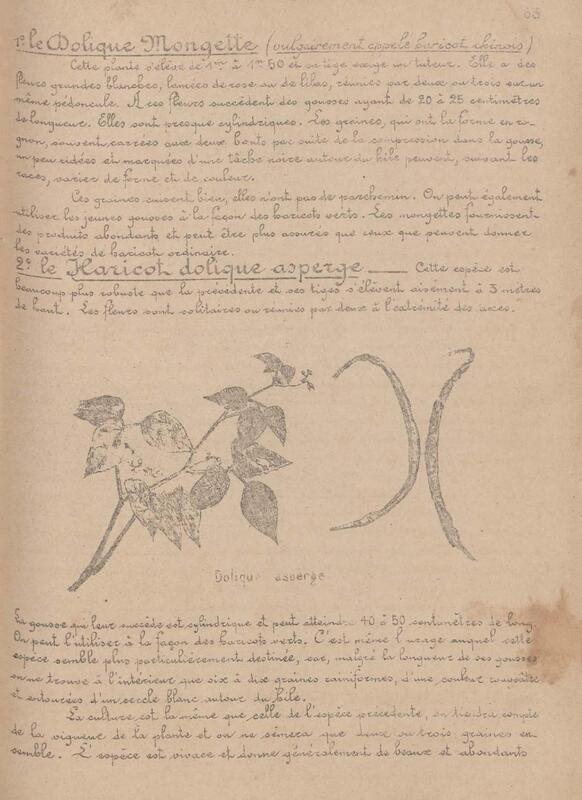 63
1º. le Dolique Mongette (vulgairement appelé haricot chinois)
Cette plante s'élève de 1m à 1m 50 et sa tige exige un tuteur. Elle a des
fleurs grandes blanches, lamées de rose ou de lilas, réunies par deux ou trois sur un
même pédoncule. A ces fleurs succèdent des gousses ayant de 20 à 25 centimètres
de longueur. Elles sont presque cylindriques. Les graines, qui ont la forme en ro-
gnon, souvent carrées aux deux bouts par suite de la compression dans la gousse,
un peu ridées et marquées d'une tâche noire autour du hile peuvent, suivant les
races, varier de forme et de couleur.
Ces graines cuisent bien, elles n'ont pas de parchemin. On peut également
utiliser les jeunes gousses à la façon des haricots verts. Les mongettes fournissent
des produits abondants et peut être plus assurés que ceux que peuvent donner
les variétés de haricot ordinaire.
2º. le Haricot dolique asperge ___ Cette espèce est
beaucoup plus robuste que la précédente et ses tiges s'élèvent aisément à 3 mètres
de haut. Les fleurs sont solitaires ou réunies par deux à l'extrémité des axes.
Dolique asperge
La gousse qui leur succède est cylindrique et peut atteindre 40 à 50 centimètres de long.
On peut l'utiliser à la façon des haricots verts. C'est même l'usage auquel cette
espèce semble plus particulièrement destinée, car, malgré la longueur de ses gousses
on ne trouve à l'intérieur que six à dix graines réniformes, d'une couleur roussâtre
et entourées d'un cercle blanc autour du hile.
La culture est la même que celle de l'espèce précédente, on tiendra compte
de la vigueur de la plante et on ne sèmera que deux ou trois graines en-
semble. L'espèce est vivace et donne généralement de beaux et abondants